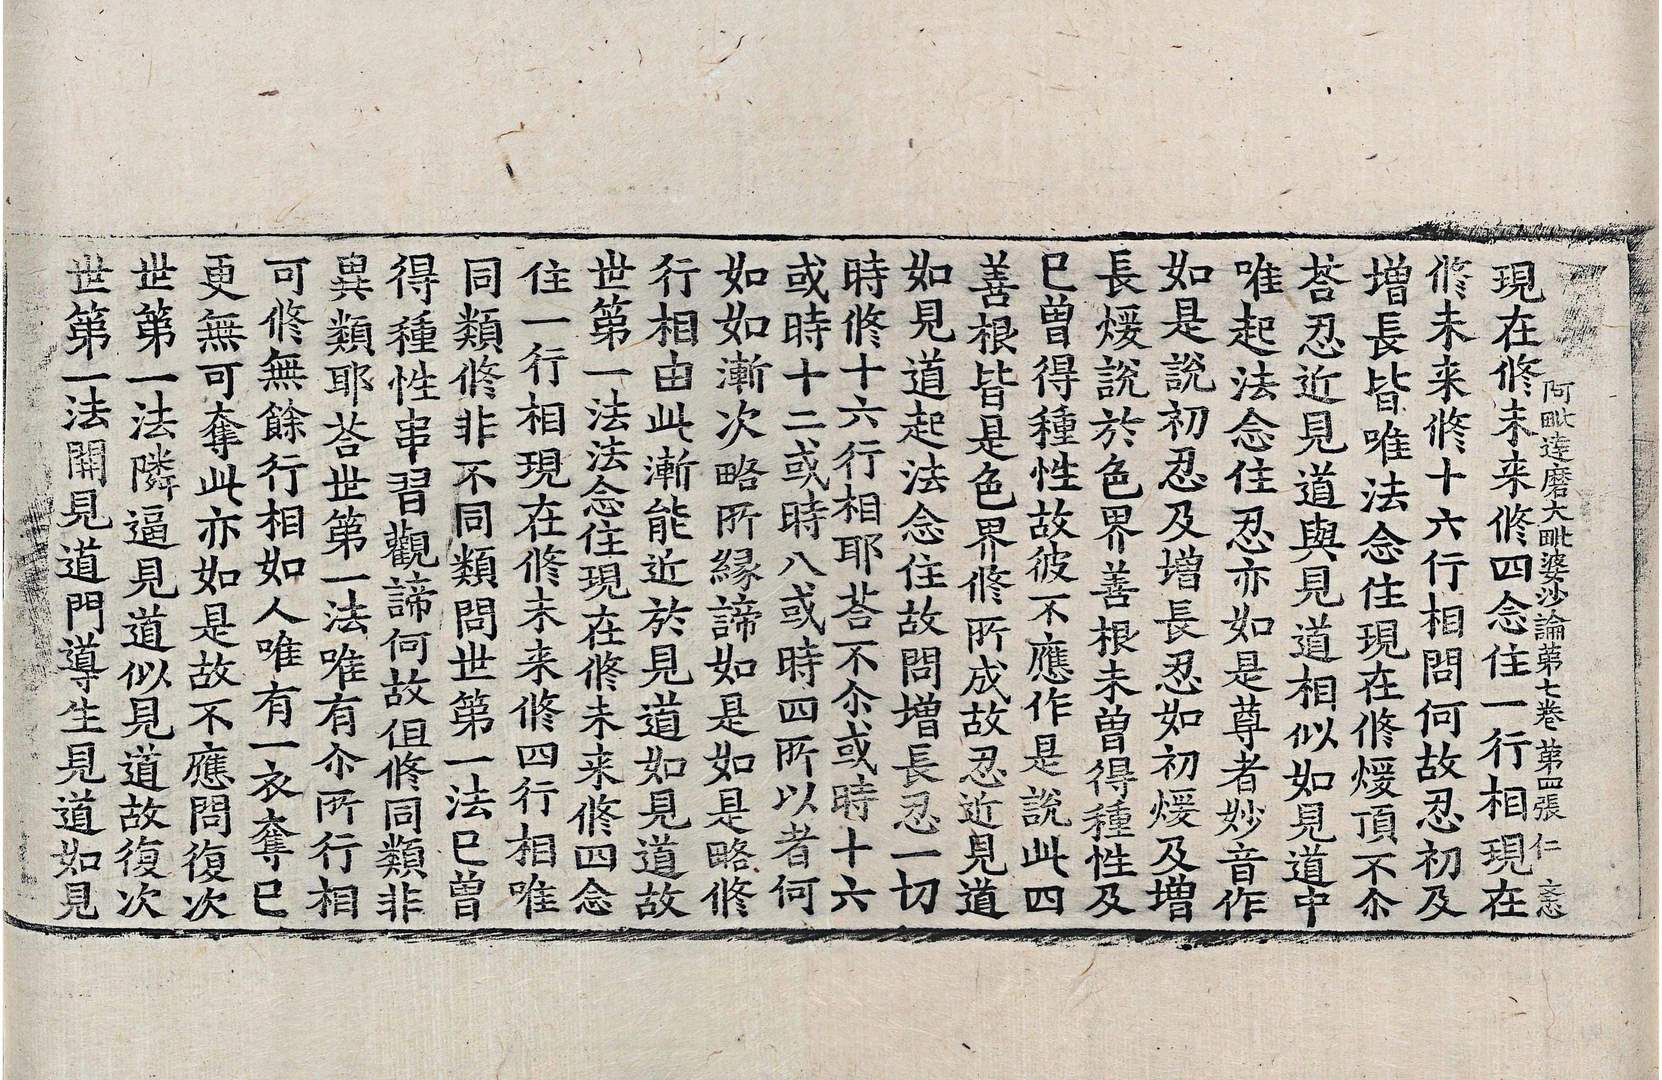 阿毗達磨大毗婆沙論第七卷 第四張 仁 忞
現在修未来修四念住一行相現在
修未来修十六行相問何故忍初及
增長皆唯法念住現在修煖頂不尒
荅忍近見道與見道相似如見道中
唯起法念住忍亦如是尊者妙音作
如是說初忍及增長忍如初煖及增
長煖說於色界善根未曾得種性及
已曾得種性故彼不應作是說此四
善根皆是色界修所成故忍近見道
如見道起法念住故問增長忍一切
時修十六行相耶荅不尒或時十六
或時十二或時八或時四所以者何
如如漸次略所緣諦如是如是略修
行相由此漸能近於見道如見道故
世第一法法念住現在修未来修四念
住一行相現在修未来修四行相唯
同類修非不同類問世第一法已曾
得種性串習觀諦何故但修同類非
異類耶荅世第一法唯有尒所行相
可修無餘行相如人唯有一衣奪已
更無可奪此亦如是故不應問復次
世第一法隣逼見道似見道故復次
世第一法開見道門導生見道如見